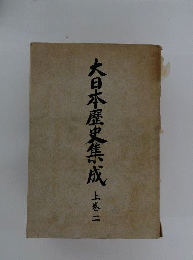 大日本歴史集成
上巻二